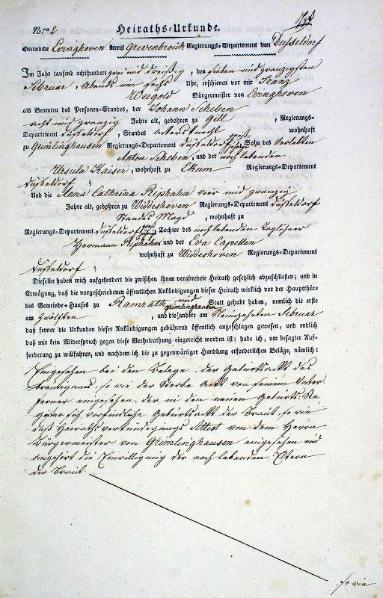 Nro 2. Heiraths-Urkunde.
Gemeinde Evinghoven Kreis Grevenbroich Regierungs-Departement von Düsseldorf
Im Jahr tausend achthundert zwei und dreißig, den sieben und zwanzigsten
Februar Abends um sechs Uhr, erschienen vor mir Franz
Weigold Bürgermeister von Evinghoven
als Beamten des Personen-Standes, der Johann Scheben
acht und zwanzig Jahre alt, gebohren zu Gill, Regierungs-
Departement Düsseldorf, Standes Ackerknecht wohnhaft
zu Gümlinghausen Regierungs-Departement Düsseldorf Sohn des verlebten
Anton Scheben, und der noch lebenden
Ursula Kaiser, wohnhaft zu Ekum Regierungs-Departement
Düsseldorf;
Und die Anna Cathrina Ripphahn vier und zwanzig
Jahre alt, gebohren zu Widdeshoven Regierungs-Departement Düsseldorf
Standes Magd, wohnhaft zu
Regierungs-Departement Düsseldorf Tochter des noch lebenden Taglöhner
Hermann Ripphahn und der Eva Capellen
wohnhaft zu Widdeshoven Regierungs-Departement
Düsseldorf;
Dieselbe haben mich aufgefordert die zwischen ihnen verabredete Heirath gesetzlich abzuschließen; und in
Erwägung, daß die vorgeschriebenen öffentlichen Ankündigungen dieser Heirath wirklich vor der Hauptthüre
des Gemeinde-Hauses zu Ramrath und Gümlinghausen Statt gehabt haben, nemlich die erste
am zwölften und die andere am Neunzehnten Februar
daß ferner die Urkunden dieser Ankündigungen gehörig öffentlich angeschlagen gewesen, und endlich
daß mir kein Widerspruch gegen diese Verheirathung eingereicht worden ist; habe ich, um besagter Auf-
forderung zu willfahren, und nachdem ich die zu gegenwärtiger Handlung erforderlichen Beläge, nämlich:
Eingesehen bei den Belage der Geburtsakt des
Bräutigams, so wie der Sterbe Akt von seinem Vater
ferner eingesehen, der in den neuen Geburts Re
gister sich befindliche Geburtsakt der Braut, so wie
daß Heirathsverkündigungs Attest von dem Herrn
Bürgermeister von Gümlinghausen eingesehen und
angehört die Einwilligung der noch lebenden Eltern
der Braut.
so wie